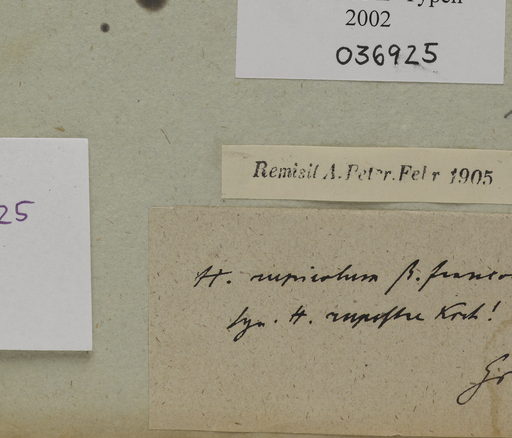 Typen
2002
036925
25
Remisit A. Peter. Febr 1905
H. rupicolum β. franco
Syn. H. rupestre Koch!
Gr